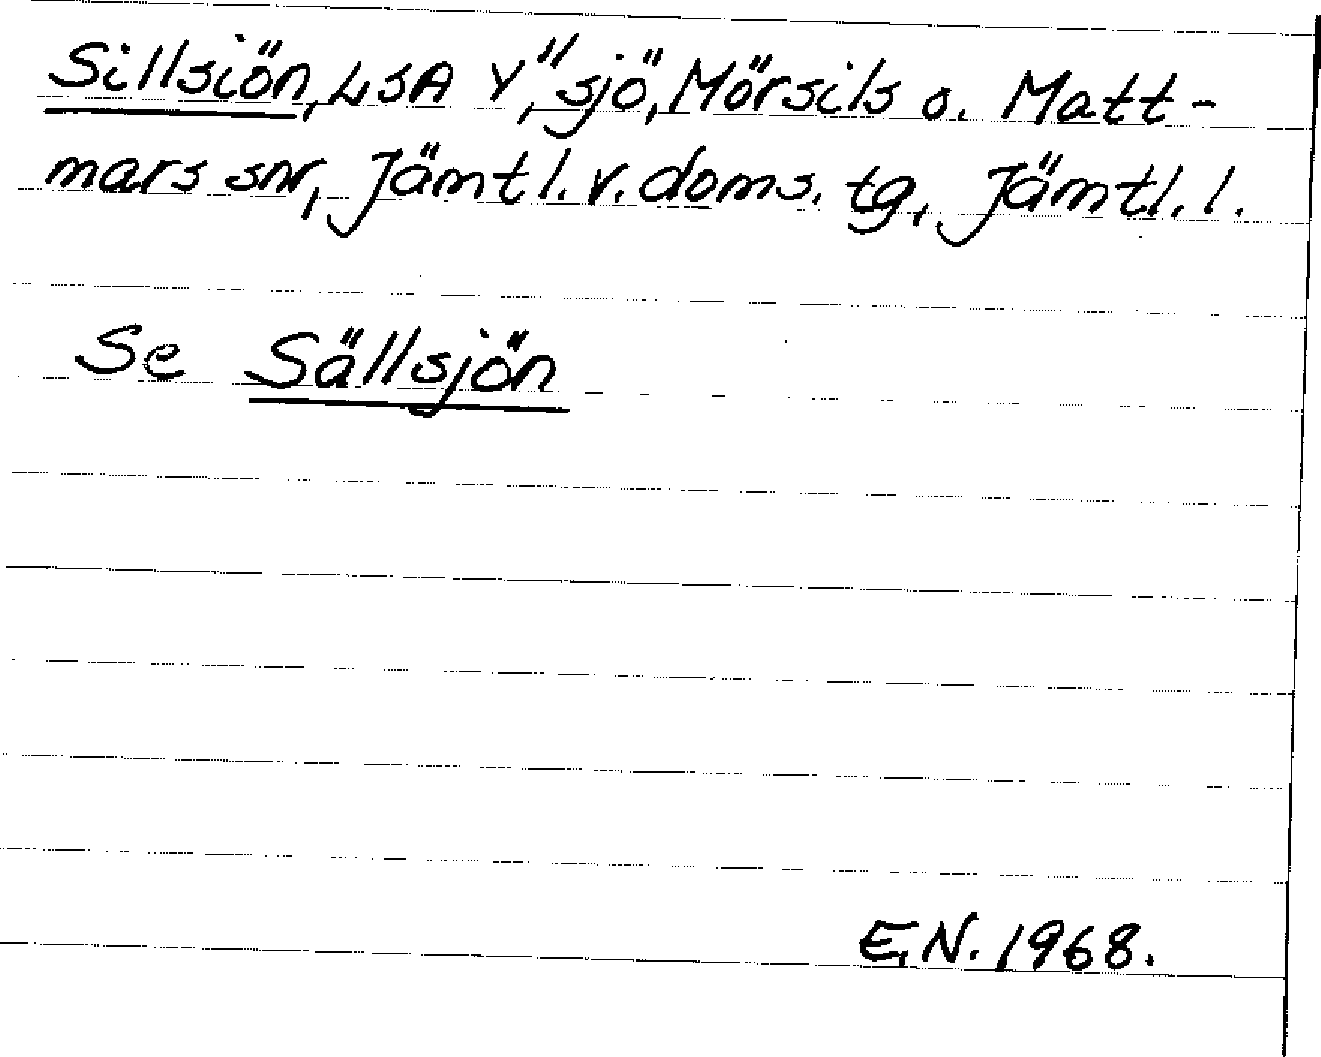 Sillsiön, LSA Y", sjö, Mörsils o. Matt-
mars snr, Jämtl. v. doms. tg, Jämtl. l.
Se Sällsjön
E.N. 1968.